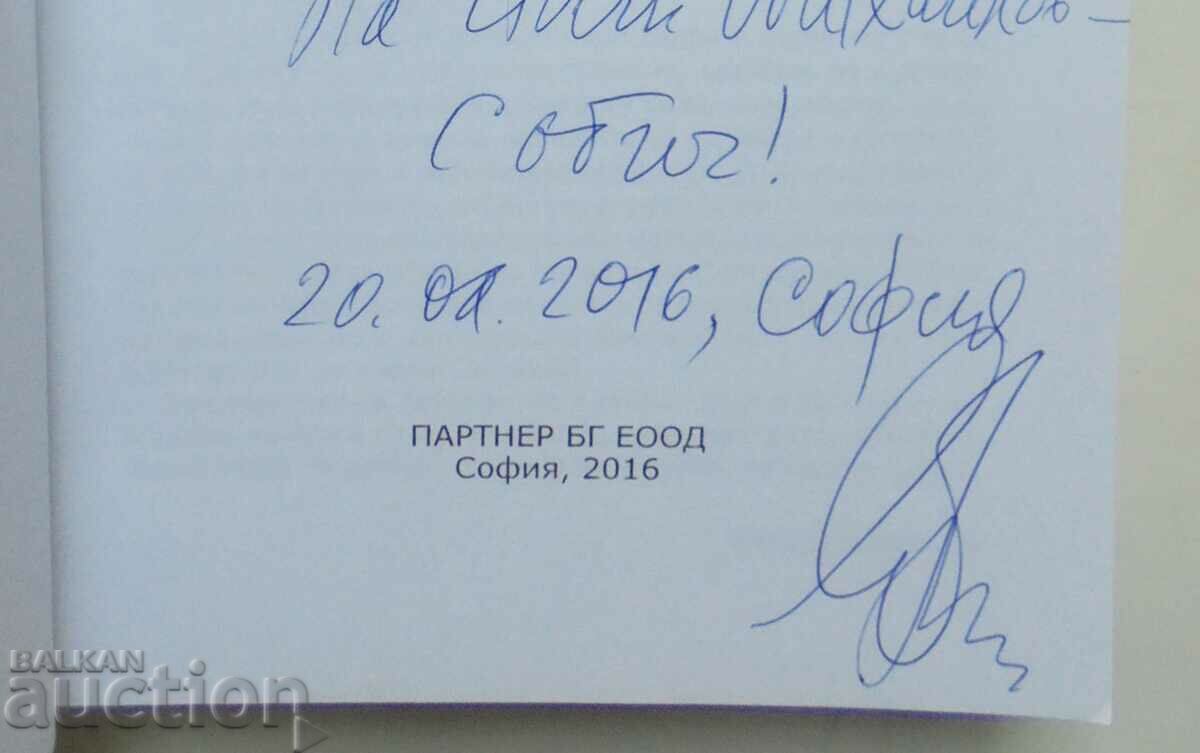 На
С обич!
20. 2016, София
ПАРТНЕР БГ ЕООД
София, 2016
BALKAN
auction